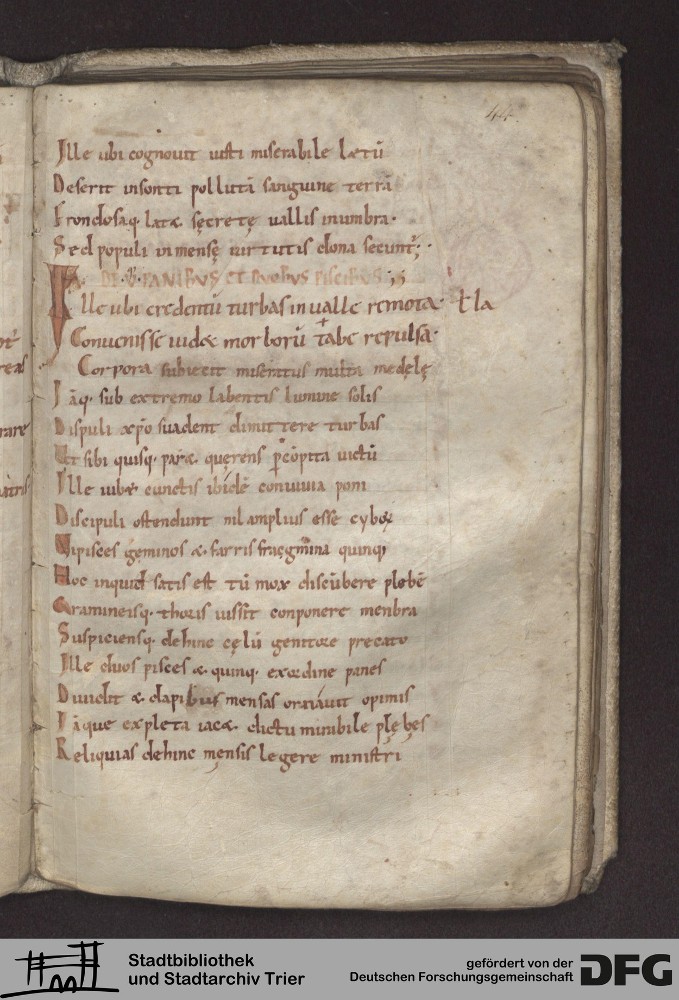 44
Ille ubi cognovit iusti miserabile lætū
Deserit insonti pollutā sanguine terrā
Frondosaq· latæ sęcretę vallis inumbra·
Sed populi inmensę virtutis dona secunt̄;·
DE·V·PANIBVS ET DVOBVS PISCIBVS ;;
Ille ubi credentū turbas in valle remota· ł la
Convenisse videt morborū tabe repulsa·
Corpora subiecit miseritus multa medęlę
Iāq· sub extremo labentis lumine solis
Dispuli xp̄o suadent dimittere turbas
Ut sibi quisq· paræ· quęrens victū
Ille iubet cunctis ibidē convivia poni
Discipuli ostendunt nil amplius esse cyboꝝ
Nipisces geminos &· farris fragmina quinq;
Hoc inquid satis est tū mox discūbere plebē
Gramineisq· thoris iussit conponere menbra
Suspiciensq· dehinc cęlū genitore precato
Ille duos pisces &· quinq· exordine panes
Dividit &· dapibus mensas oneravit opimis
Iāque expleta iacet· dictu mirabile plębes
Reliquias dehinc męnsis legere ministri
Stadtbibliothek
und Stadtarchiv Trier
gefördert von der
Deutschen Forschungsgemeinschaft
DFG